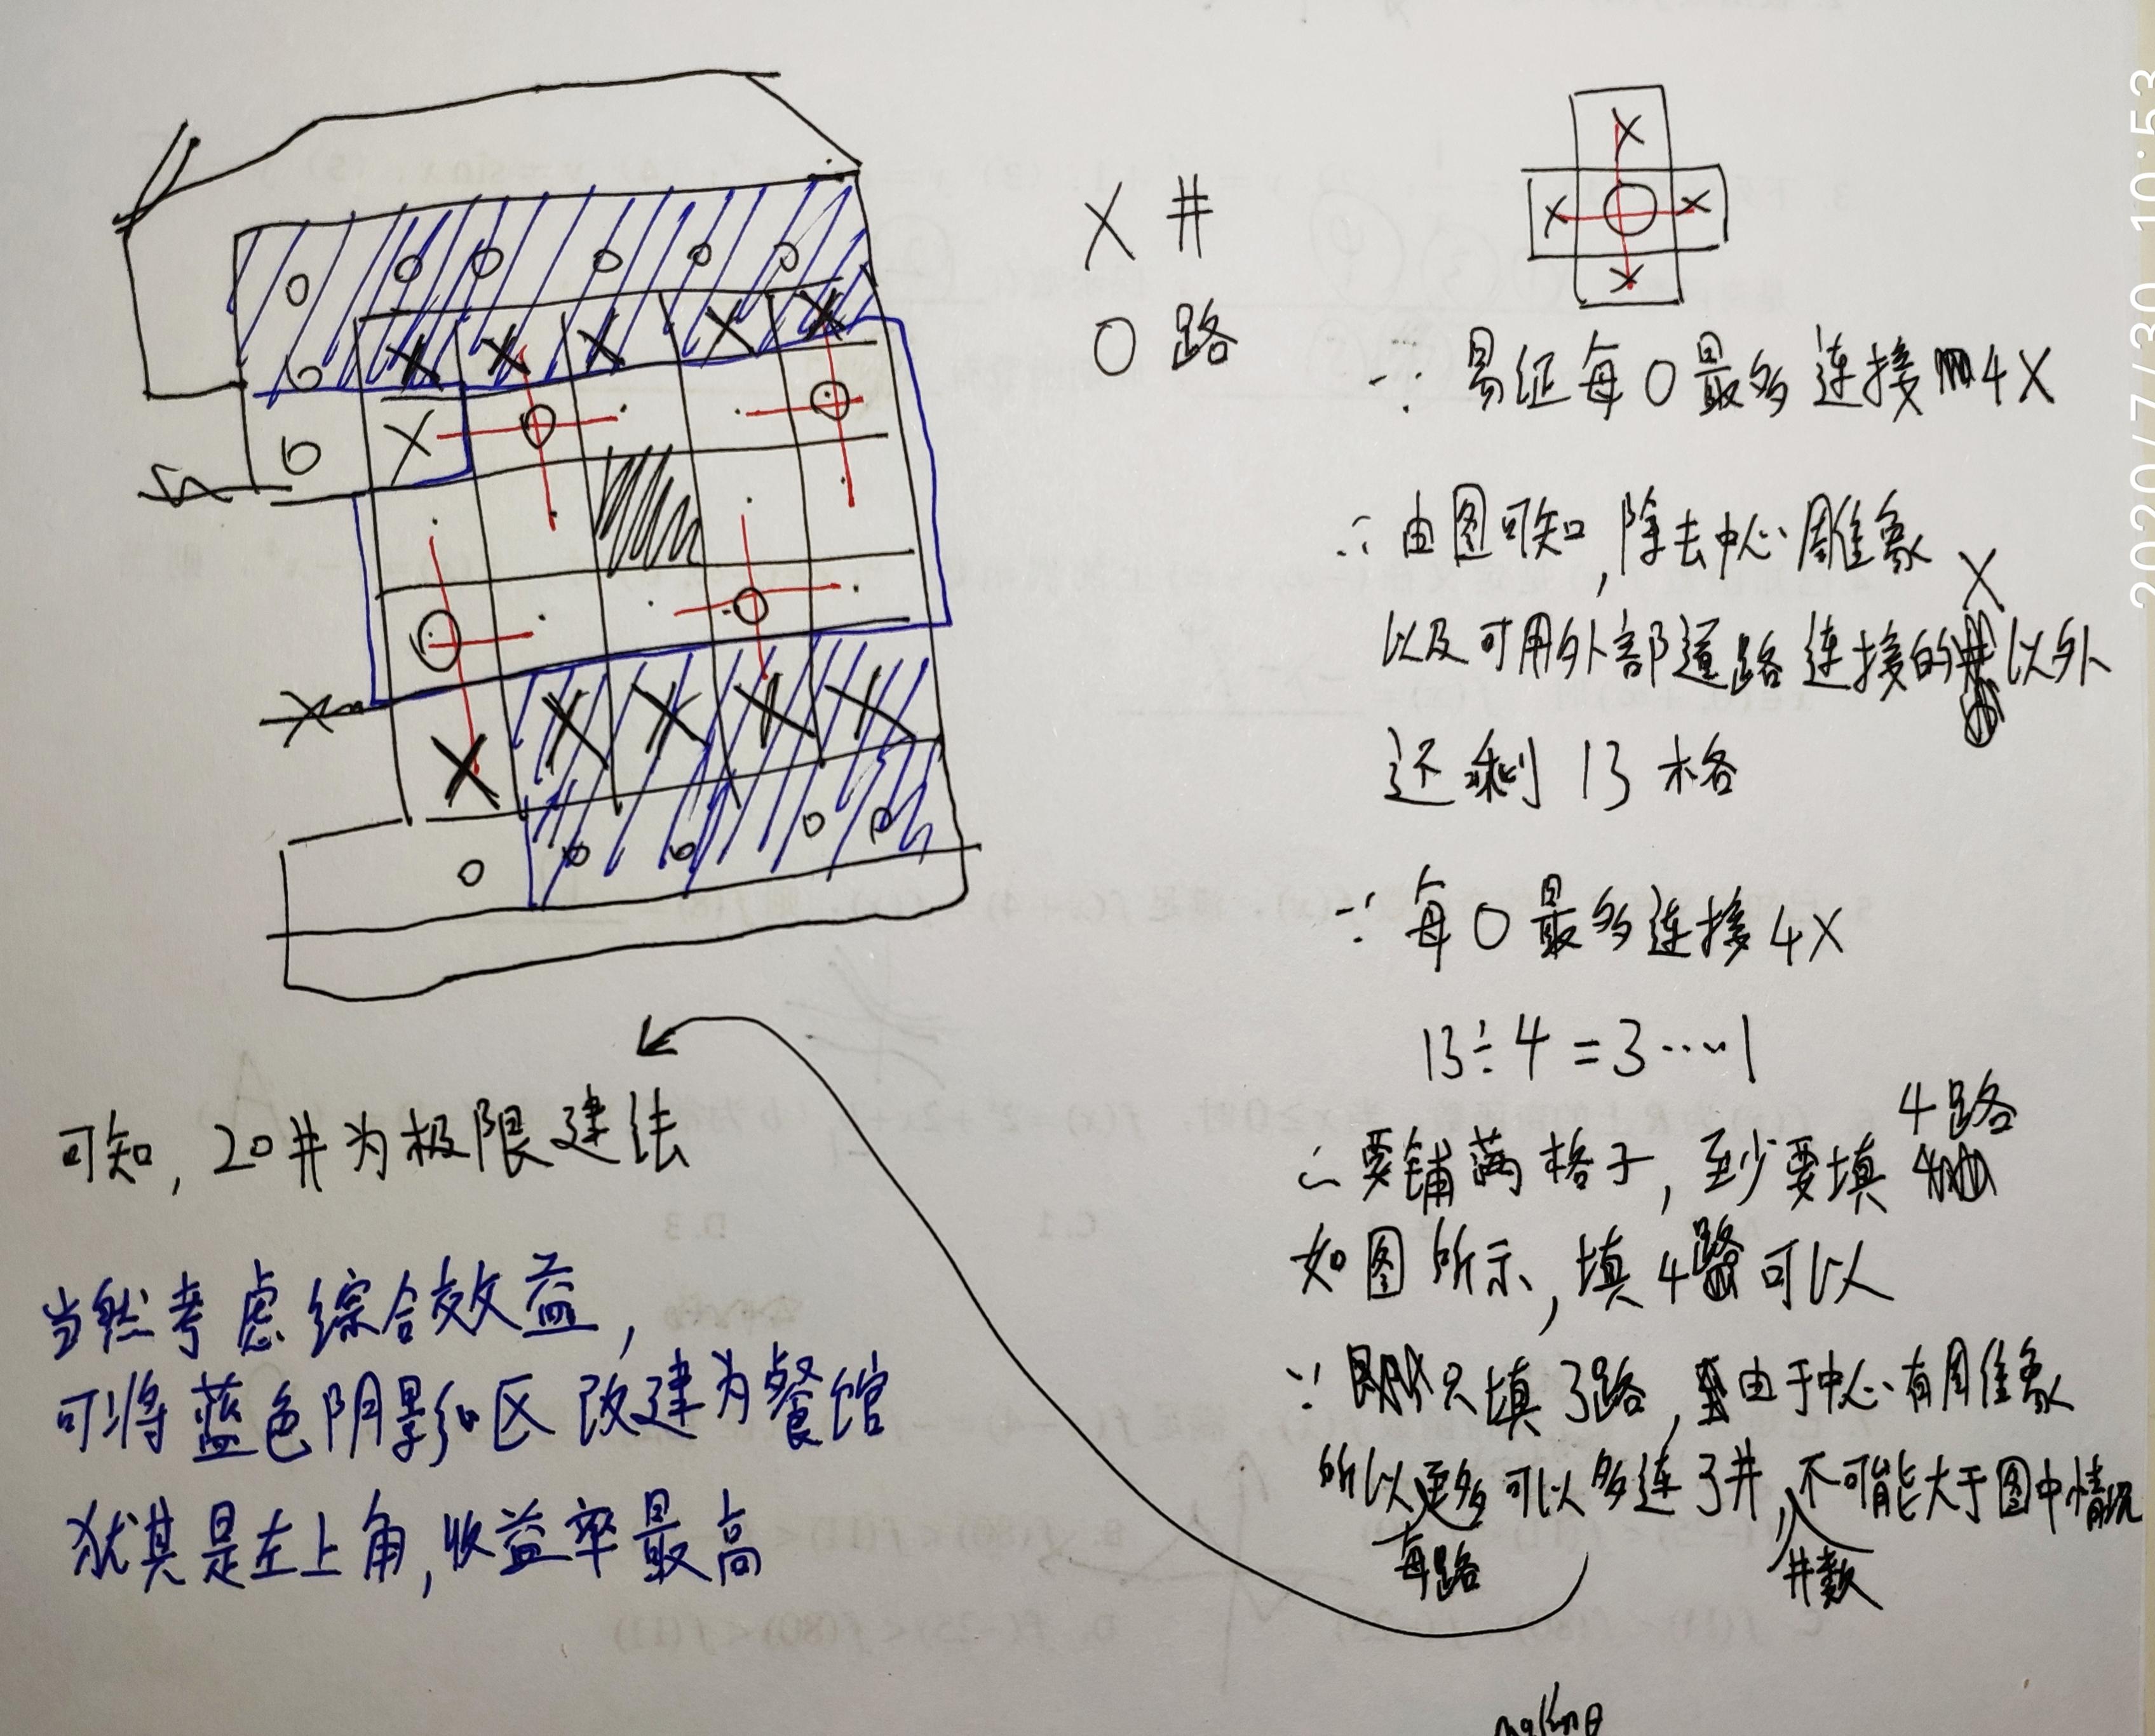 X 井
O 路
∵ 易证每O最多连接4X
∴ 由图可知,除去中心雕象
以及可用外部道路连接的X以外
还剩 13 格
∵ 每O最多连接4X
13÷4=3……1
∴要铺满格子,至少要填4路
如图所示,填4路可以
∵ 只填3路,由于中心有雕象
所以每路可以多连3井,井数不可能大于图中情况
可知,20井为极限建法
当然考虑综合效益,
可将蓝色阴影区改建为餐馆
犹其是左上角,收益率最高
2020/7/30 10:53